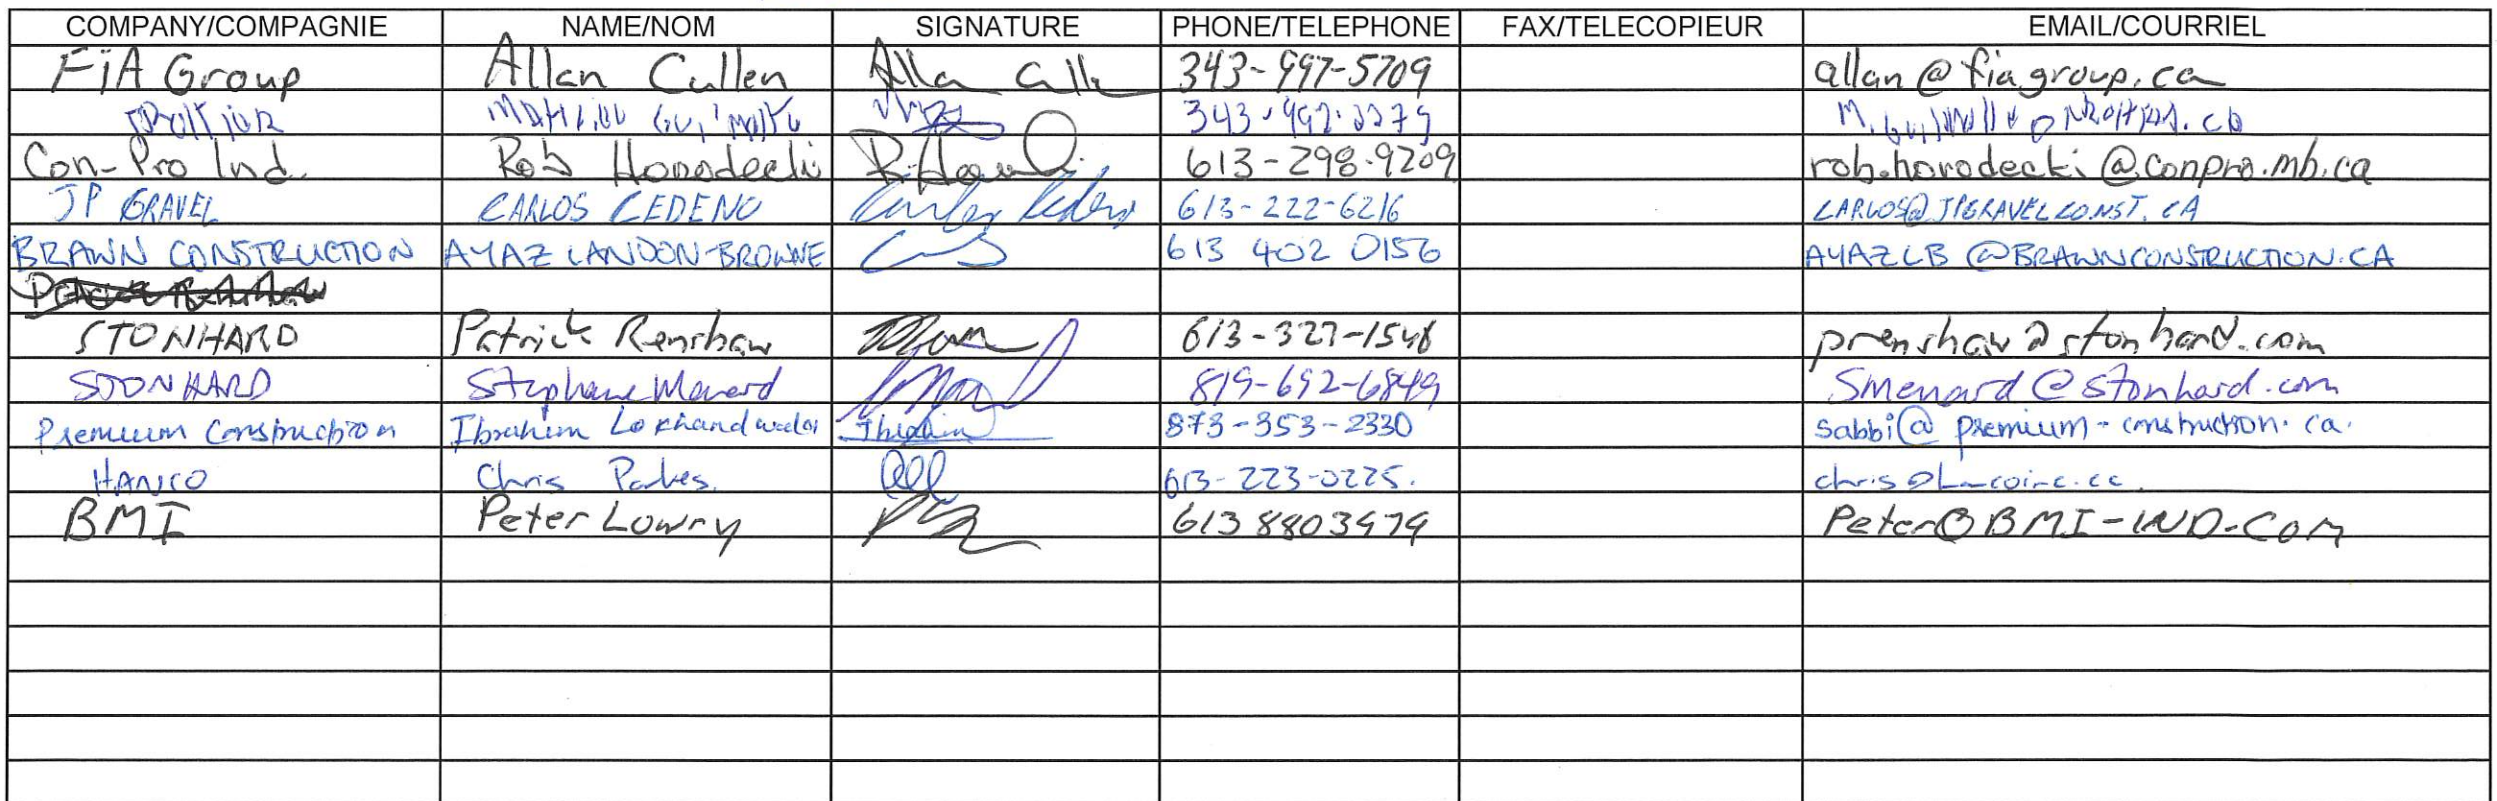 COMPANY/COMPAGNIE NAME/NOM SIGNATURE PHONE/TELEPHONE FAX/TELECOPIEUR EMAIL/COURRIEL
FiA Group Allan Cullen 343-997-5709 allan@fiagroup.ca
343-992-2279
Con-Pro Ind. Rob Horodecki 613-298-9209 rob.horodecki@conpro.mb.ca
JP GRAVEL CARLOS CEDENO Carlos Cedeno 613-222-6216 CARLOS@JPGRAVELCONST.CA
BRAWN CONSTRUCTION AYAZ LANDON-BROWNE 613 402 0156 AYAZLB@BRAWNCONSTRUCTION.CA
STONHARD Patrick Renshaw 613-327-1548 prenshaw@stonhard.com
STONHARD Stephane Menard 819-692-6849 Smenard@stonhard.com
Premium Construction Ibrahim Lokhandwala Ibrahim 873-353-2330 sabbi@premium-construction.ca.
HANCO Chris Parkes. 613-223-0225.
BMI Peter Lowry 613 8803979 Peter@BMI-IND-Com